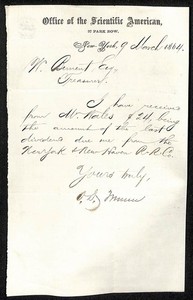 Office of the Scientific American,
37 PARK ROW,
New-York, 9 March 1864
Wm Bement Esq,
Treasurer,
I have received
from Mr. Wales $24, being
the amount of the last
dividend due me from the
New York & New Haven R.R. Co.
Yours truly,
O. D. Munn